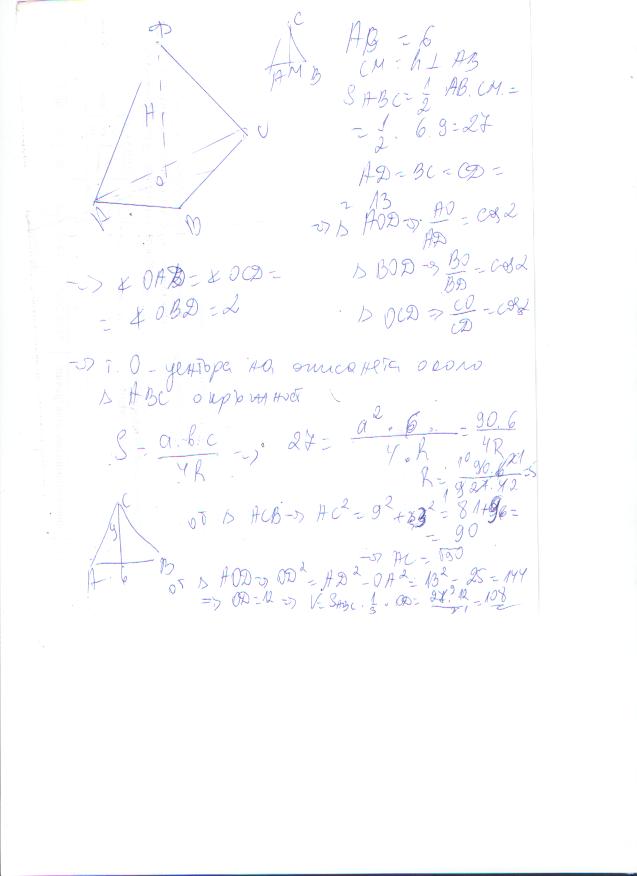 D
H
C
O
A
B
C
A M B
AB = 6
CM = h ⊥ AB
S ABC = 1/2 AB.CM =
= 1/2 . 6.9 = 27
AD = BC = CD =
= 13
=> Δ AOD => AO/AD = cos α
Δ BOD => BO/BD = cos α
Δ OCD => CO/CD = cos α
=> ∢ OAD = ∢ OCD =
= ∢ OBD = α
=> т. O - центъра на описанета около
Δ ABC окръжност
S = a.b.c/4R => 27 = a² . 6 / 4.R = 90.6/4R
R =
C
9
A 6 B
от Δ ACB => AC² = 9² + 3² = 81 + 9 =
= 90
=> AC = √90
от Δ AOD => OD² = AD² - OA² = 13² - 25 = 144
=> OD = 12 => V = S ABC . 1/3 . OD = 27.12/3 = 108